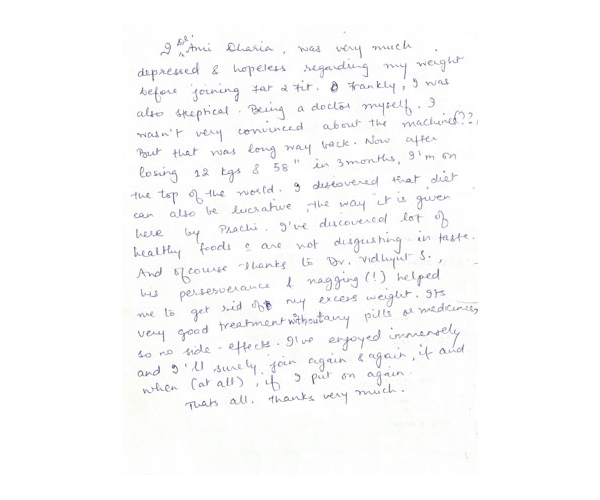 I Dr. Ami Dharia, was very much
depressed & hopeless regarding my weight
before joining Fat 2 Fit. Frankly, I was
also skeptical. Being a doctor myself. I
wasn't very convinced about the machines??,
But that was long way back. Now after
losing 12 kgs & 58" in 3 months, I'm on
the top of the world. I discovered that diet
can also be lucrative, the way it is given
here by Prachi. I've discovered lot of
healthy foods c are not disgusting in taste.
And ofcourse thanks to Dr. Vidhyut S.,
his perserverance & nagging (!) helped
me to get rid of my excess weight. Its
very good treatment without any pills or medicines,
so no side-effects. I've enjoyed immensely
and I'll surely join again & again, if and
when (at all), if I put on again.
Thats all. Thanks very much.